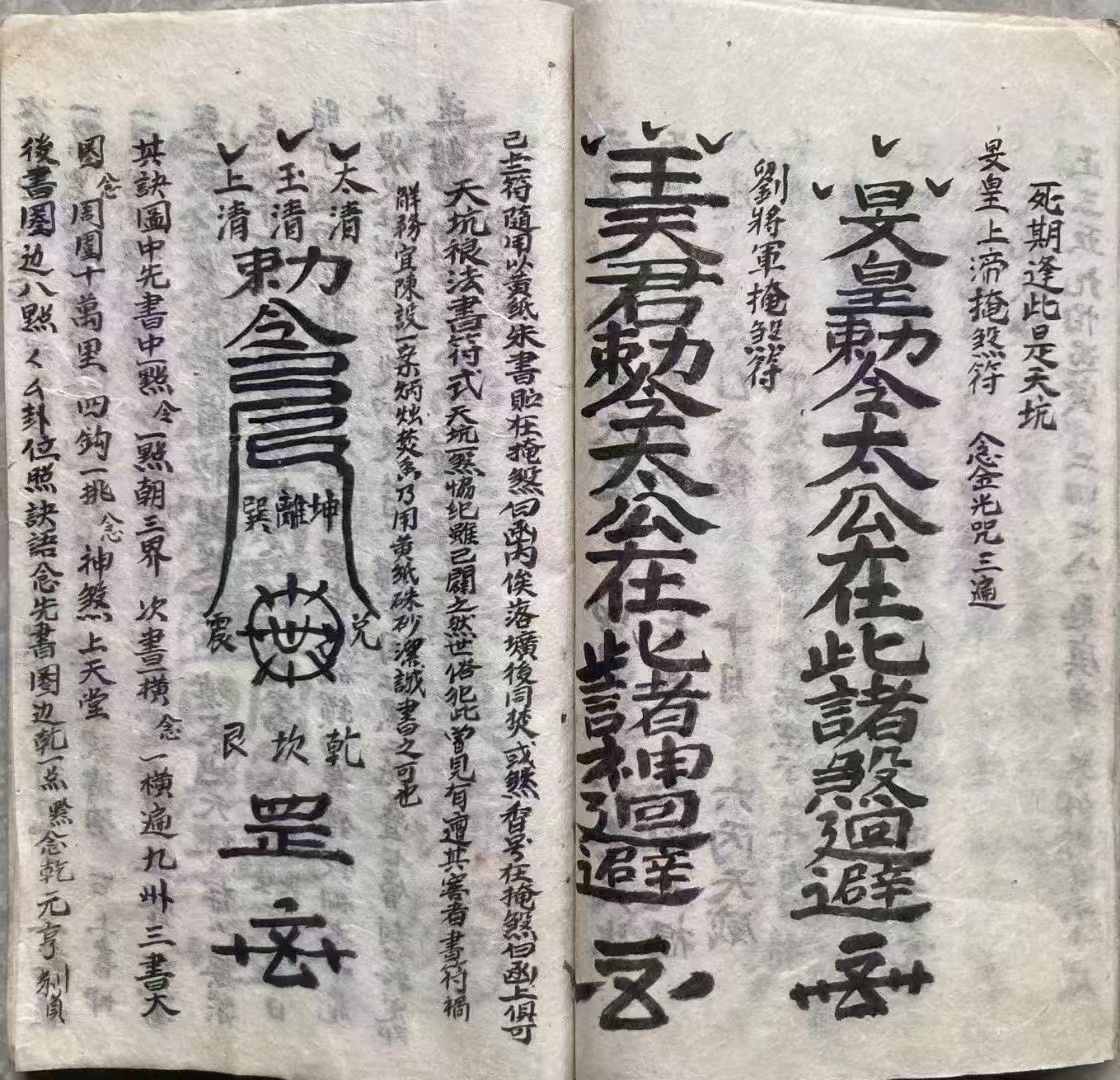 死期逢此是天坑
旻皇上渧掩煞符　念金光咒三遍
旻皇勅令太公在此諸煞迴避
劉將軍掩煞符
王天君勅令太公在此諸神迴避
已上三符隨用以黃紙朱書貼在掩煞曰函內俟落壙後同焚或然香号在掩煞曰函上俱可
天坑禳法書符式天坑一煞恊紀雖已闢之然世俗犯此曾見有遭其害者書符禍
解務宜陳設一案炳燭焚香乃用黃紙硃砂潔誠書之可也
太清
玉清
上清
勅令
坤
離
巽
兌
世
震
乾
坎
艮
罡
其訣圖中先書中一點念一點朝三界　次書一橫念一橫遍九州三書大
圈念周圍十萬里四鈎一挑念神煞上天堂
後書圈边八點々么卦位照訣語念先書圈边乾一点點念乾元亨利貞